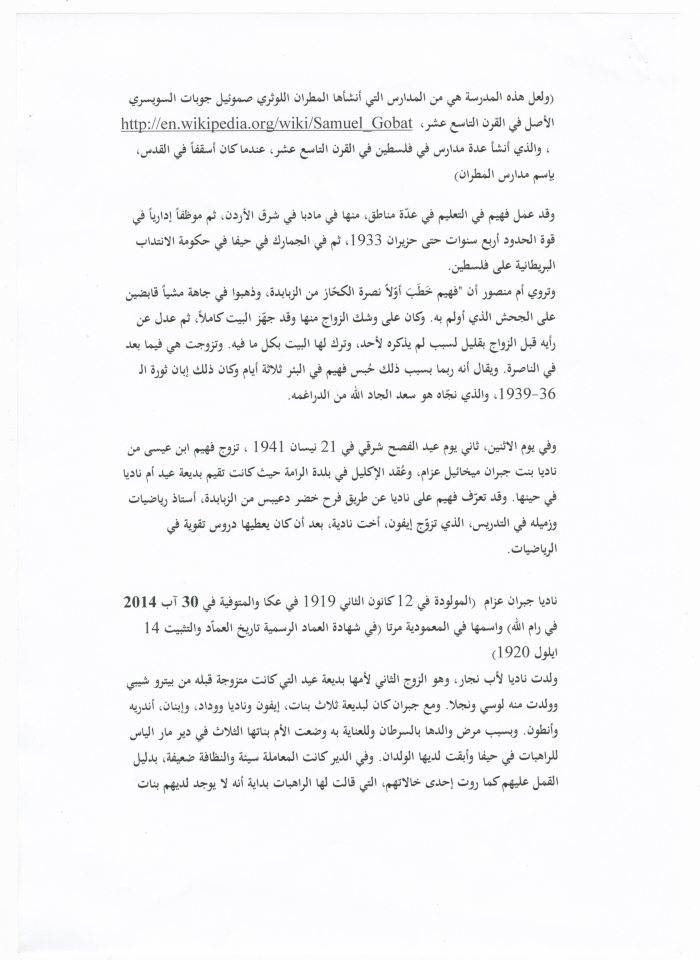 (ولعل هذه المدرسة هي من المدارس التي أنشأها المطران اللوثري صموئيل جوبات السويسري
الأصل في القرن التاسع عشر، http://en.wikipedia.org/wiki/Samuel_Gobat
، والذي أنشأ عدة مدارس في فلسطين في القرن التاسع عشر، عندما كان أسقفاً في القدس،
بإسم مدارس المطران)
وقد عمل فهيم في التعليم في عدّة مناطق، منها في مادبا في شرق الأردن، ثم موظفاً إدارياً في
قوة الحدود أربع سنوات حتى حزيران 1933، ثم في الجمارك في حيفا في حكومة الانتداب
البريطانية على فلسطين.
وتروي أم منصور أن "فهيم خَطَبَ أوّلاً نصرة الكحّاز من الزبابدة، وذهبوا في جاهة مشياً قابضين
على الجحش الذي أولم به. وكان على وشك الزواج منها وقد جهّز البيت كاملاً، ثم عدل عن
رأيه قبل الزواج بقليل لسبب لم يذكره لأحد، وترك لها البيت بكل ما فيه. وتزوجت هي فيما بعد
في الناصرة. ويقال أنه ربما بسبب ذلك حُبس فهيم في البئر ثلاثة أيام وكان ذلك إبان ثورة الـ
36-1939، والذي نجّاه هو سعد الجاد الله من الدراغمه.
وفي يوم الاثنين، ثاني يوم عيد الفصح شرقي في 21 نيسان 1941 ، تزوج فهيم ابن عيسى من
ناديا بنت جبران ميخائيل عزام، وعُقد الإكليل في بلدة الرامة حيث كانت تقيم بديعة عيد أم ناديا
في حينها. وقد تعرّف فهيم على ناديا عن طريق فرح خضر دعيبس من الزبابدة، أستاذ رياضيات
وزميله في التدريس، الذي تزوّج إيفون، أخت نادية، بعد أن كان يعطيها دروس تقوية في
الرياضيات.
ناديا جبران عزام (المولودة في 12 كانون الثاني 1919 في عكا والمتوفية في 30 آب 2014
في رام الله) واسمها في المعمودية مرتا (في شهادة العماد الرسمية تاريخ العمّاد والتثبيت 14
ايلول 1920)
ولدت ناديا لأب نجار، وهو الزوج الثاني لأمها بديعة عيد التي كانت متزوجة قبله من بيترو شيبي
وولدت منه لوسي ونجلا. ومع جبران كان لبديعة ثلاث بنات، إيفون وناديا ووداد، وإبنان، أندريه
وأنطون. وبسبب مرض والدها بالسرطان وللعناية به وضعت الأم بناتها الثلاث في دير مار الياس
للراهبات في حيفا وأبقت لديها الولدان. وفي الدير كانت المعاملة سيئة والنظافة ضعيفة، بدليل
القمل عليهم كما روت إحدى خالاتهم، التي قالت لها الراهبات بداية أنه لا يوجد لديهم بنات